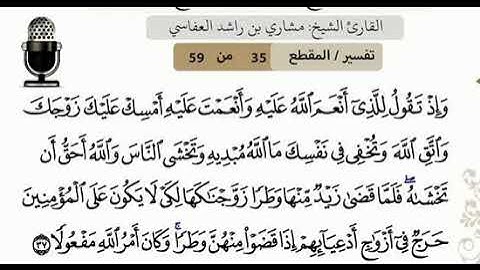 القارئ الشيخ: مشاري بن راشد العفاسي
تفسير / المقطع 35 من 59
وَإِذْ تَقُولُ لِلَّذِىٓ أَنْعَمَ ٱللَّهُ عَلَيْهِ وَأَنْعَمْتَ عَلَيْهِ أَمْسِكْ عَلَيْكَ زَوْجَكَ
وَٱتَّقِ ٱللَّهَ وَتُخْفِى فِى نَفْسِكَ مَا ٱللَّهُ مُبْدِيهِ وَتَخْشَى ٱلنَّاسَ وَٱللَّهُ أَحَقُّ أَن
تَخْشَىٰهُ ۖ فَلَمَّا قَضَىٰ زَيْدٌ مِّنْهَا وَطَرًا زَوَّجْنَٰكَهَا لِكَىْ لَا يَكُونَ عَلَى ٱلْمُؤْمِنِينَ
حَرَجٌ فِىٓ أَزْوَٰجِ أَدْعِيَآئِهِمْ إِذَا قَضَوْا۟ مِنْهُنَّ وَطَرًا ۚ وَكَانَ أَمْرُ ٱللَّهِ مَفْعُولًا ٣٧